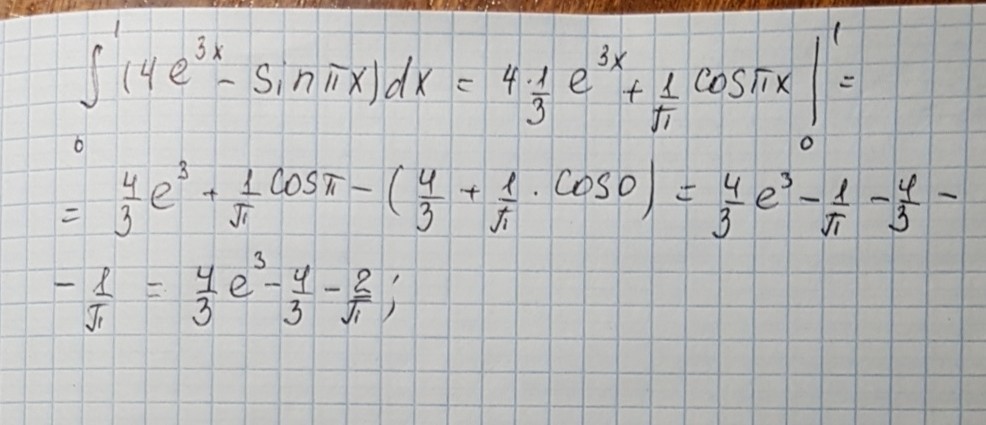 ∫₀¹ (4e^{3x} - sin πx)dx = 4·1/3 e^{3x} + 1/π cos πx |₀¹ =
= 4/3 e³ + 1/π cos π - (4/3 + 1/π · cos 0) = 4/3 e³ - 1/π - 4/3 -
- 1/π = 4/3 e³ - 4/3 - 2/π ;